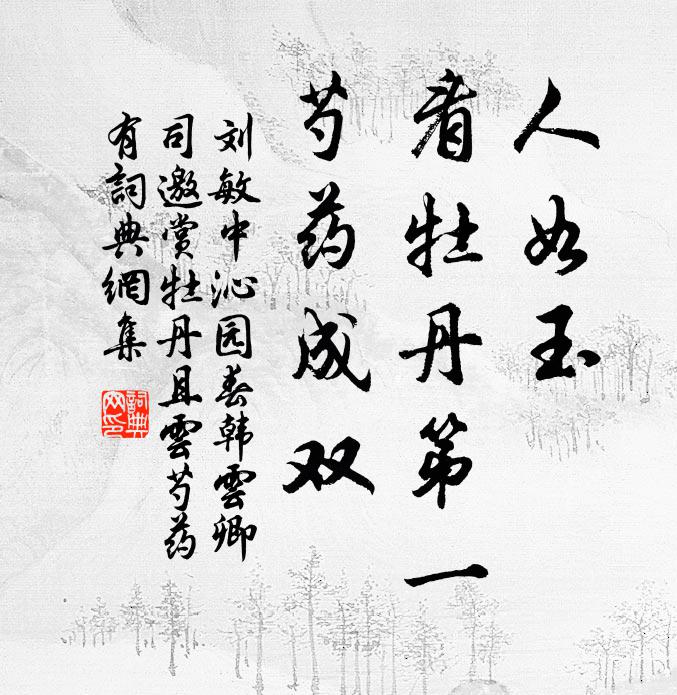 人如玉
看牡丹第一
芍药成双
刘敏中沁园春韩雲卿
司邀赏牡丹且雲芍药
有詞典網集
詞典
网印